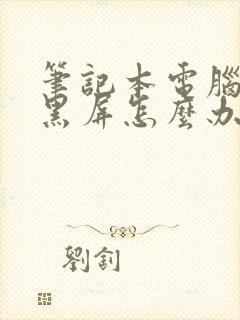 筆記本電腦
黑屏怎麼办
劉釗